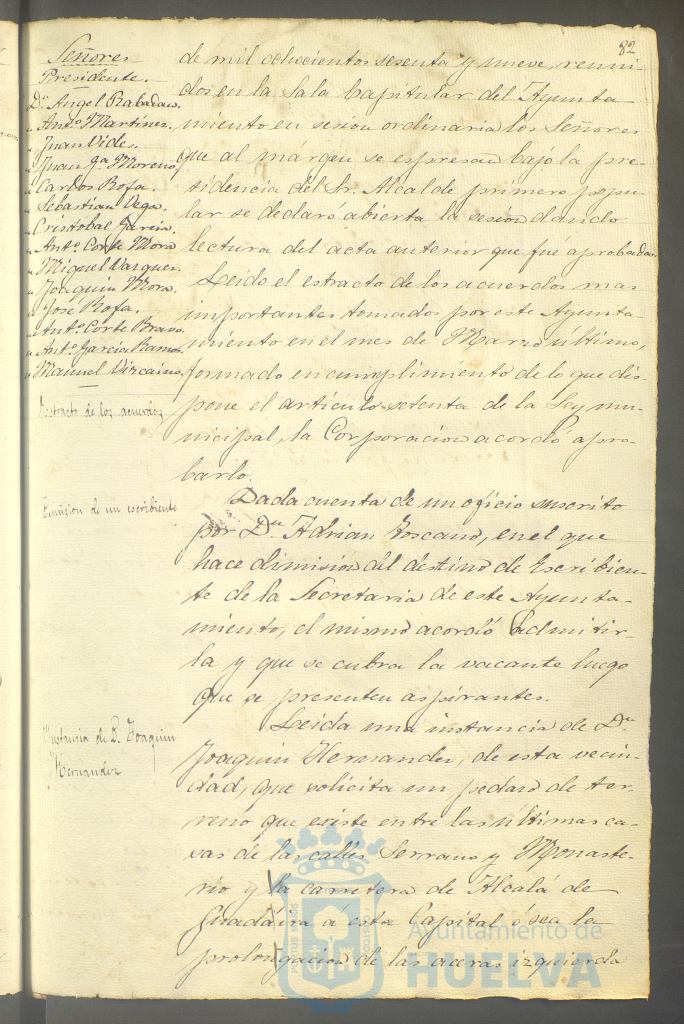 82
Señores
Presidente.
Dn. Angel Rabadan.
" Anto. Martinez.
" Juan Vides.
" Juan Ga. Moreno,
" Carlos Rofa.
" Sebastian Vega.
" Cristobal Garcia.
" Anto. Corte Mora
" Miguel Vazquez.
" Joaquin Mora.
" José Rofa.
" Anto. Corte Bravo
" Anto. Garcia Ramos.
" Manuel Vizcaino,
de mil ochocientos sesenta y nueve, reuni-
dos en la Sala Capitular del Ayunta-
miento en sesion ordinaria los Señores
que al márgen se espresan bajo la pre-
sidencia del Sr. Alcalde primero popu-
lar se declaró abierta la sesion dando
lectura del acta anterior que fué aprobada.
Estracto de los acuerdos
Leido el estracto de los acuerdos mas
importantes tomados por este Ayunta-
miento en el mes de Marzo último,
formado en cumplimiento de lo que dis-
pone el artículo setenta de la Ley mu-
nicipal, la Corporacion acordó apro-
barlo.
Dimision de un escribiente
Dada cuenta de un oficio suscrito
por Dn. Adrian Boscano, en el que
hace dimision del destino de Escribien-
te de la Secretaria de este Ayunta-
miento, el mismo acordó admitir-
la y que se cubra la vacante luego
que se presenten aspirantes.
Instancia de D. Joaquin
Hernandez
Leida una instancia de Dn.
Joaquin Hernandez, de esta vecin-
dad, que solicita un pedazo de ter-
reno que existe entre las últimas ca-
sas de las calles Serrano y Monaste-
rio y la carretera de Alcalá de
Guadaira á esta Capital ó sea la
prolongacion de las aceras izquierda
Ayuntamiento de
HUELVA